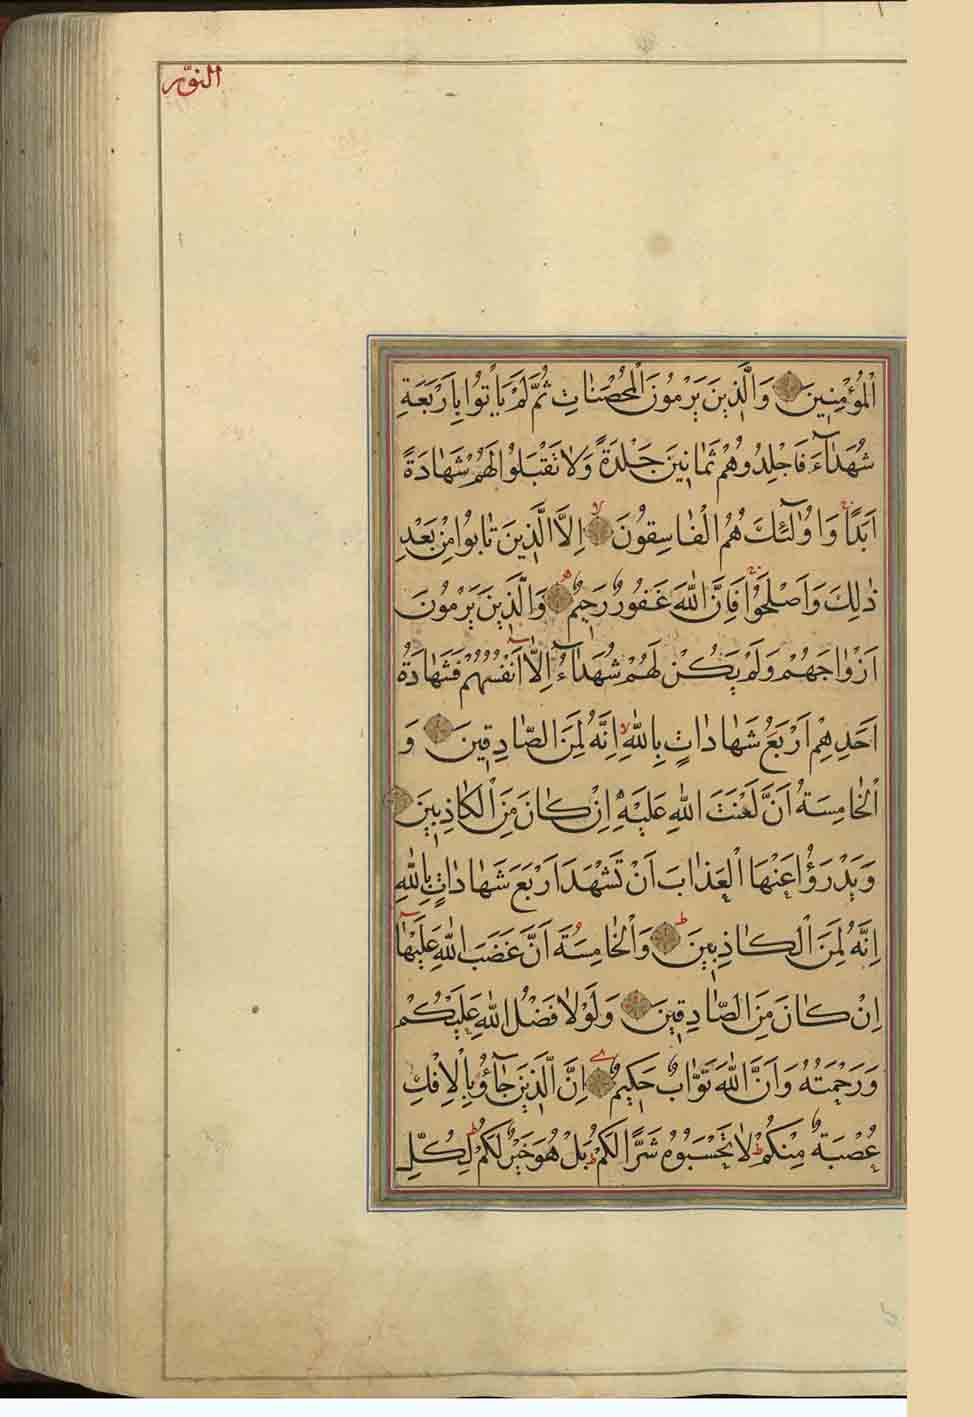 النور
الْمُؤْمِنِينَ وَالَّذِينَ يَرْمُونَ الْمُحْصَنَاتِ ثُمَّ لَمْ يَاْتُوا بِاَرْبَعَةِ
شُهَدَآءَ فَاجْلِدُوهُمْ ثَمَانِينَ جَلْدَةً وَلَا تَقْبَلُوا لَهُمْ شَهَادَةً
اَبَدًا وَاُولٰٓئِكَ هُمُ الْفَاسِقُونَ اِلَّا الَّذِينَ تَابُوا مِنْ بَعْدِ
ذٰلِكَ وَاَصْلَحُوا فَاِنَّ اللّٰهَ غَفُورٌ رَحِيمٌ وَالَّذِينَ يَرْمُونَ
اَزْوَاجَهُمْ وَلَمْ يَكُنْ لَهُمْ شُهَدَآءُ اِلَّآ اَنْفُسُهُمْ فَشَهَادَةُ
اَحَدِهِمْ اَرْبَعُ شَهَادَاتٍ بِاللّٰهِ اِنَّهُ لَمِنَ الصَّادِقِينَ وَ
الْخَامِسَةُ اَنَّ لَعْنَتَ اللّٰهِ عَلَيْهِ اِنْ كَانَ مِنَ الْكَاذِبِينَ
وَيَدْرَؤُا عَنْهَا الْعَذَابَ اَنْ تَشْهَدَ اَرْبَعَ شَهَادَاتٍ بِاللّٰهِ
اِنَّهُ لَمِنَ الْكَاذِبِينَ وَالْخَامِسَةَ اَنَّ غَضَبَ اللّٰهِ عَلَيْهَآ
اِنْ كَانَ مِنَ الصَّادِقِينَ وَلَوْلَا فَضْلُ اللّٰهِ عَلَيْكُمْ
وَرَحْمَتُهُ وَاَنَّ اللّٰهَ تَوَّابٌ حَكِيمٌ اِنَّ الَّذِينَ جَآؤُ بِالْاِفْكِ
عُصْبَةٌ مِنْكُمْ لَا تَحْسَبُوهُ شَرًّا لَكُمْ بَلْ هُوَ خَيْرٌ لَكُمْ لِكُلِّ